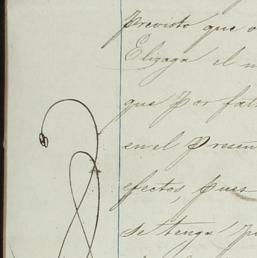 previsto que
Elizaga el
que por fal
en el Presen
efectos, pues
se tenga